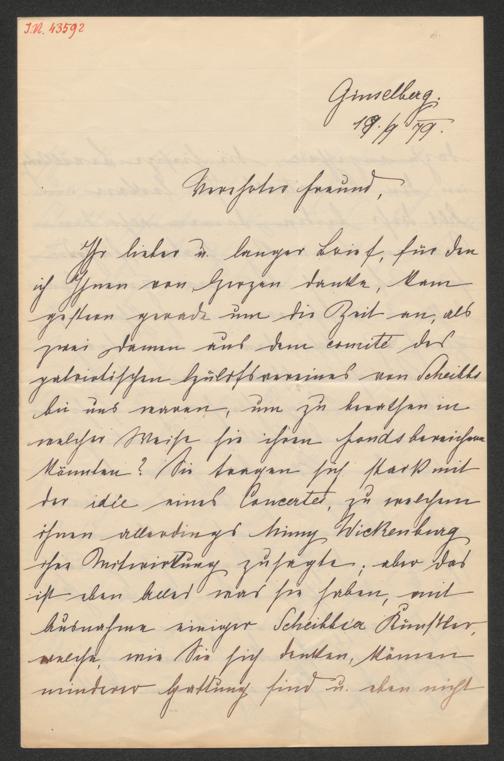 I.N. 43592
Ginselberg.
19/9 79.
Verehrter Freund,
Ihr lieber u. langer Brief, für den
ich Ihnen von Herzen danke, kam
gestern gerade um die Zeit an, als
zwei Damen aus dem comité des
patriotischen Hülfsvereines von Scheibbs
bei uns waren, um zu berathen in
welcher Weise sie ihren Fonds bereichern
könnten? Sie tragen sich stark mit
der idée eines Concertes, zu welchem
ihnen allerdings Mimy Wickenburg
ihre Mitwirkung zusagte; aber das
ist eben Alles was sie haben, mit
Ausnahme einiger Scheibbser Künstler,
welche, wie Sie sich denken, können
minderer Gattung sind u. eben nicht